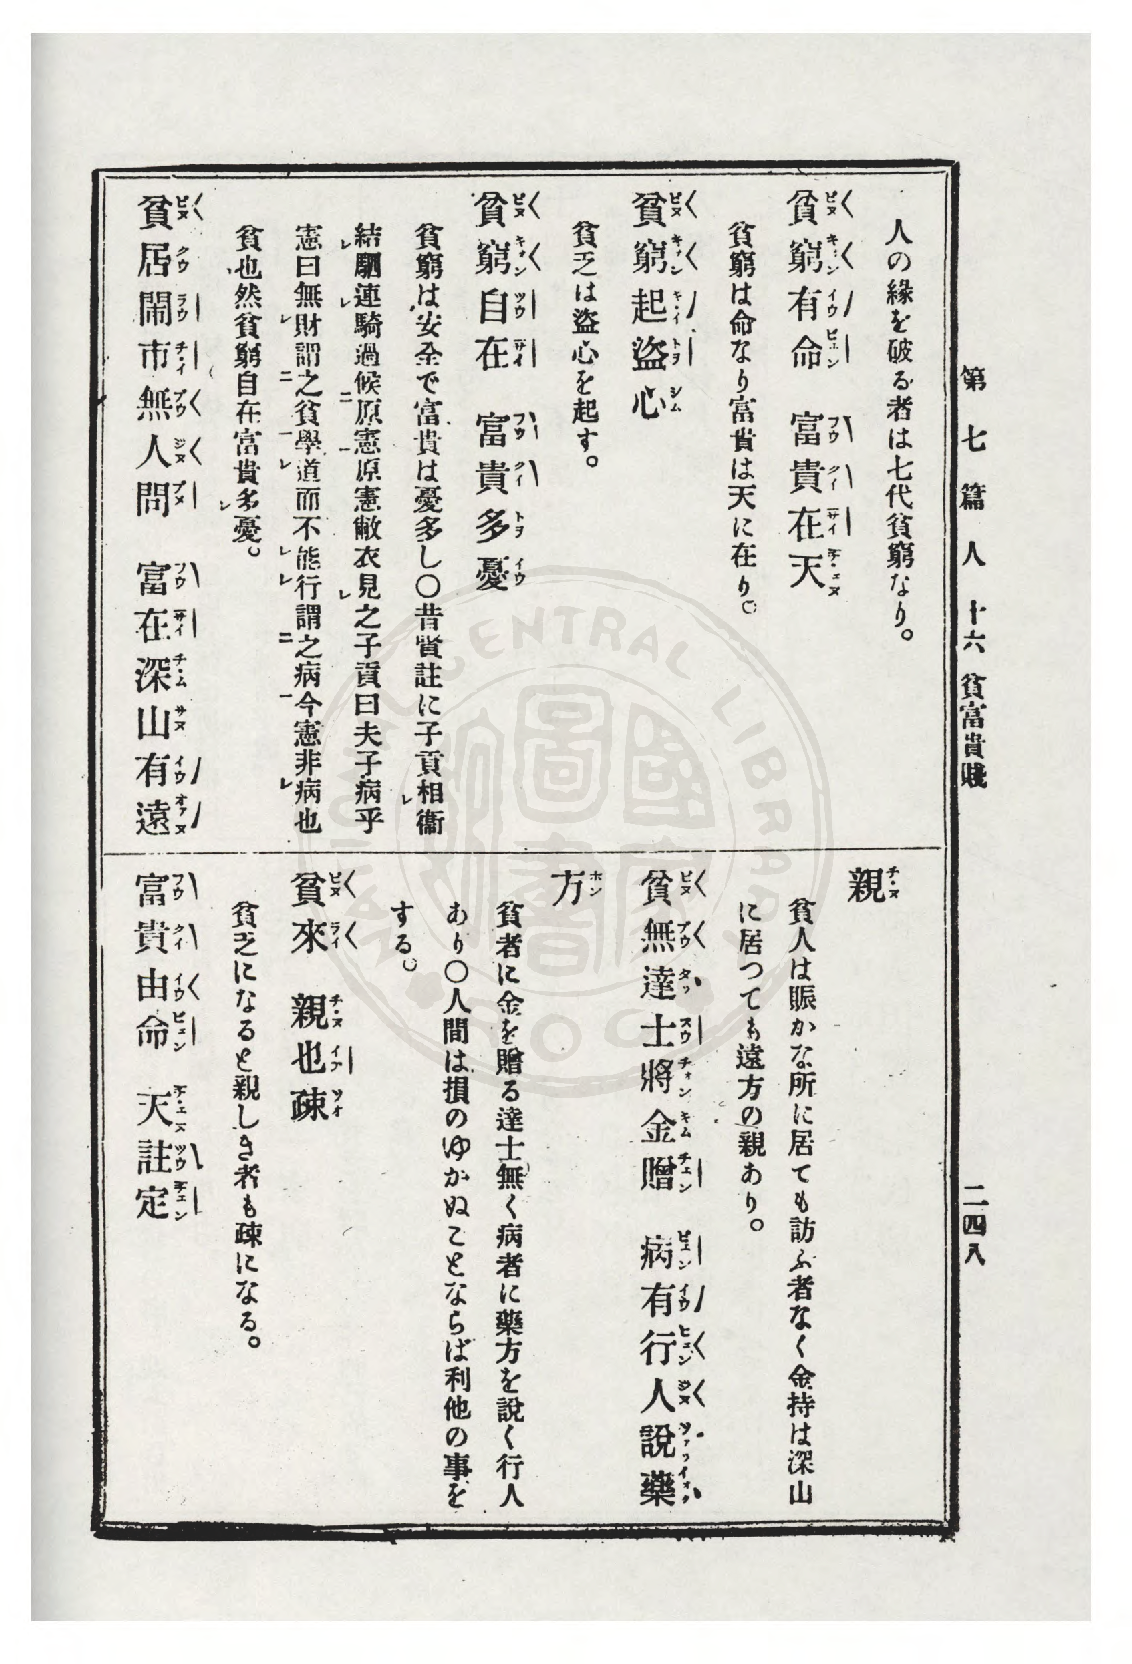 第七篇 人 十六 貧富貴賤
二四八
人の緣を破る者は七代貧窮なり。
貧窮有命 富貴在天
貧窮は命なり富貴は天に在り。
貧窮起盜心
貧乏は盜心を起す。
貧窮自在 富貴多憂
貧窮は安全で富貴は憂多し〇昔賢註に子貢相衞
結駟連騎過候原憲原憲敝衣見之子貢曰夫子病乎
憲曰無財謂之貧學道而不能行謂之病今憲非病也
貧也然貧窮自在富貴多憂。
貧居鬧市無人問 富在深山有遠
親
貧人は賑かな所に居ても訪ふ者なく金持は深山
に居つても遠方の親あり。
貧無達士將金贈 病有行人說藥
方
貧者に金を贈る達士無く病者に藥方を說く行人
あり〇人間は損のゆかぬことならば利他の事を
する。
貧來 親也疎
貧乏になると親しき者も疎になる。
富貴由命 天註定
NATIONAL CENTRAL LIBRARY
ROC
國家圖書館